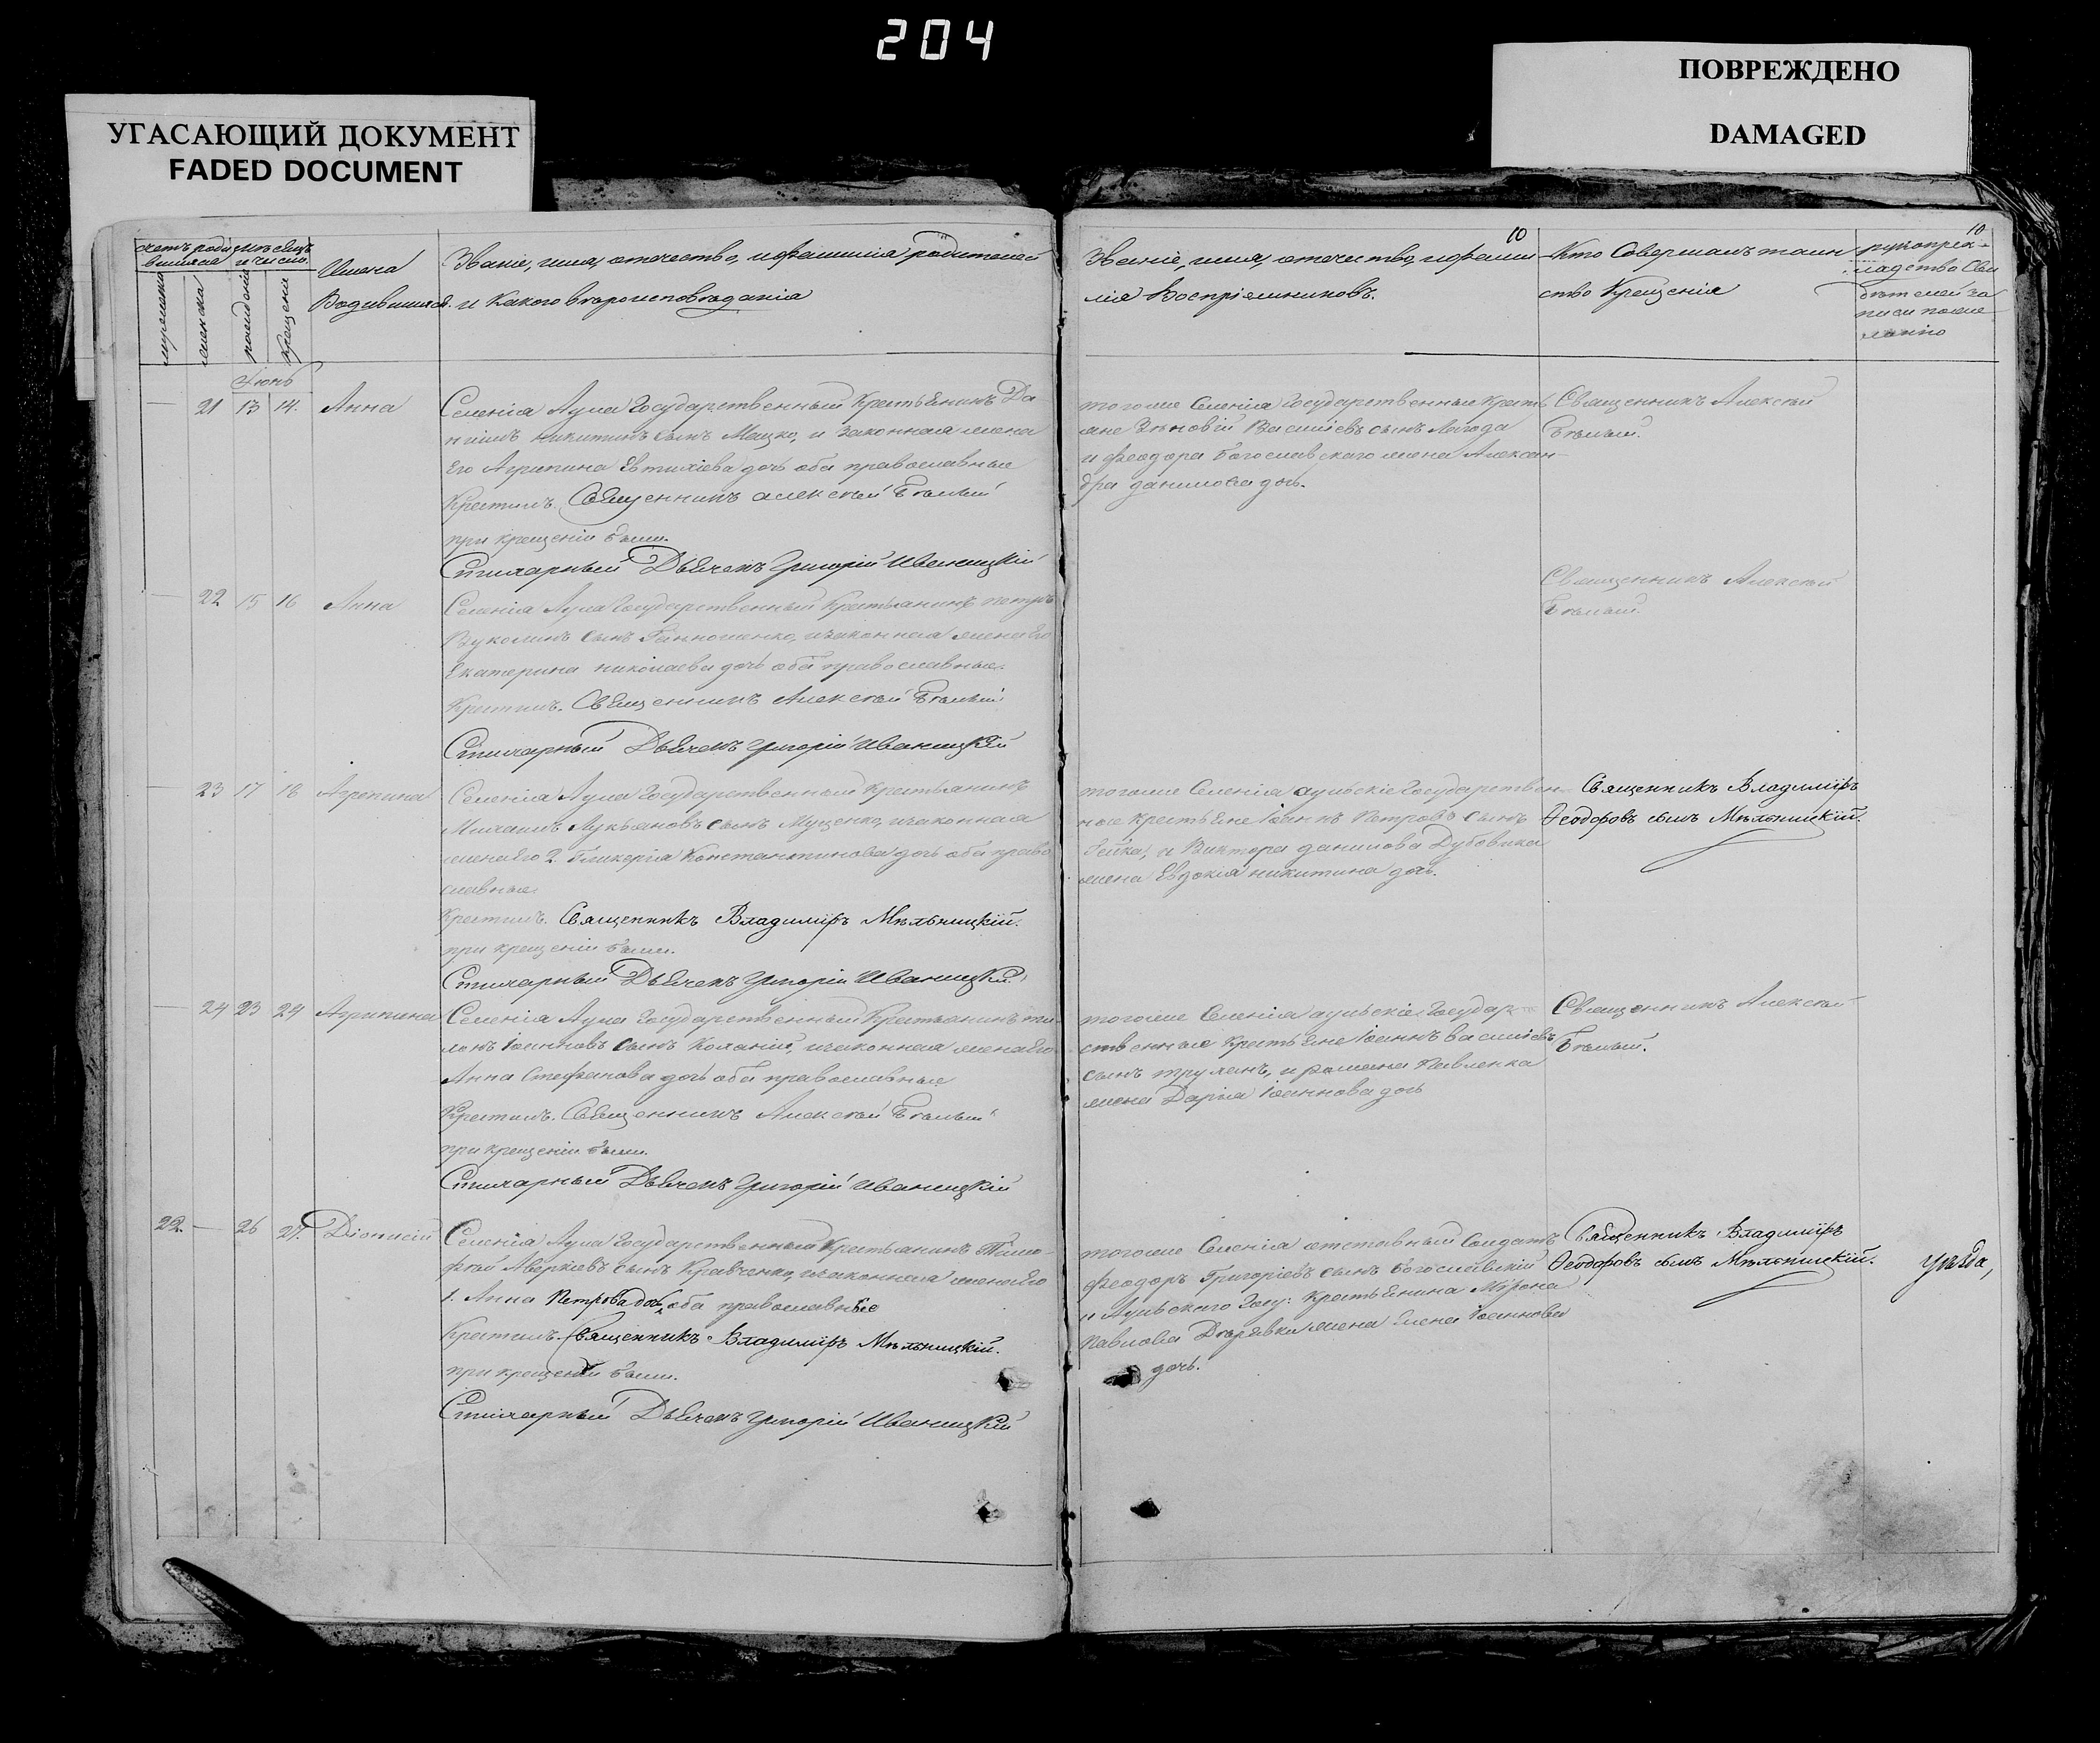 204
УГАСАЮЩИЙ ДОКУМЕНТ
FADED DOCUMENT
ПОВРЕЖДЕНО
DAMAGED
10
10
счетъ роди
вшихся
мѣсяцъ
и число.
мужеска
женска
рожденія
крещенія
Имена
Родившихся.
Званіе, имя, отечество, и фамилія родителей
и какого вѣроисповѣданія
Званіе, имя, отечество, и фами
лія Воспріемниковъ.
Кто Совершалъ таин
ство Крещенія
рукоприк-
ладство Сви
дѣтелей за
писи по же
ланію
Іюнь
21 13 14. Анна
Селенія Аула Государственный Крестьянинъ Да
ніилъ Никитинъ сынъ Мацко, и Законная жена
Его Агрипина Евтихіева дочь оба православные
Крестилъ Священникъ Алексѣй Бѣлый
при крещеніи были.
Стихарный Дьячекъ Григорій Иваницкій
тогоже Селенія Государственные Кресть
яне Зѣновій Василіевъ сынъ Легода
и Феодора Богославскаго жена Алексан-
дра Данилова дочь.
Священникъ Алексѣй
Бѣлый.
22 15 16 Анна
Селенія Аула Государственный Крестьянинъ Петръ
Вуколинъ сынъ, и законная жена Его
Екатерина Николаева дочь оба православные.
Крестилъ. Священникъ Алексѣй Бѣлый
Стихарный Дьячекъ Григорій Иваницкій
Священникъ Алексѣй
Бѣлый.
23 17 18 Агрепина
Селенія Аула Государственный Крестьянинъ
Михаилъ Лукьяновъ сынъ Муценко, и законная
жена Его 2. Гликерія Константинова дочь оба право
славные.
Крестилъ. Священникъ Владиміръ Мѣльницкій.
при крещеніи были.
Стихарный Дьячекъ Григорій Иваницкій
тогоже Селенія аульскіе Государствен
ные крестьяне Іоаннъ Петровъ сынъ
Гейка, и Виктора Данилова Дубовика
жена Евдокія Никитина дочь.
Священникъ Владиміръ
Ѳеодоровъ сынъ Мѣльницкій.
24 23 24 Агрипина
Селенія Аула Государственный Крестьянинъ
Іоанновъ сынъ, и законная жена Его
Анна Стефанова дочь оба православные
Крестилъ. Священникъ Алексѣй Бѣлый
при крещеніи были.
Стихарный Дьячекъ Григорій Иваницкій
тогоже Селенія аульскіе Государ
ственные Крестьяне Іоаннъ Василіевъ
сынъ, и Романа Павленка
жена Дарія Іоаннова дочь
Священникъ Алексѣй
Бѣлый.
22. 26 27. Діонисій
Селенія Аула Государственный Крестьянинъ Тимо-
фѣй Аверкіевъ сынъ Кравченко, и законная жена Его
1. Анна Петрова дочь, оба православные
Крестилъ. Священникъ Владиміръ Мѣльницкій.
при крещеніи были.
Стихарный Дьячекъ Григорій Иваницкій
тогоже Селенія отставный Солдатъ
Феодоръ Григоріевъ сынъ Богославскій
и Аульскаго Госу: крестьянина Мірона
Павлова жена Елена Іоаннова
дочь.
Священникъ Владиміръ
Ѳеодоровъ сынъ Мѣльницкій.
уѣзда,